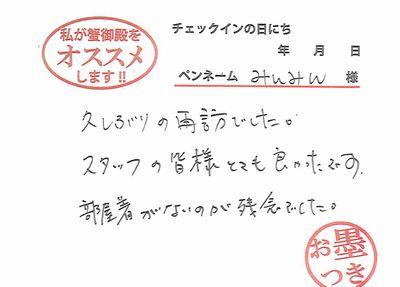 私が蟹御殿を
オススメ
します!!
チェックインの日にち
年 月 日
ペンネーム みんみん 様
久しぶりの再訪でした。
スタッフの皆様とても良かったです。
部屋着がないのが残念でした。
お墨
つき